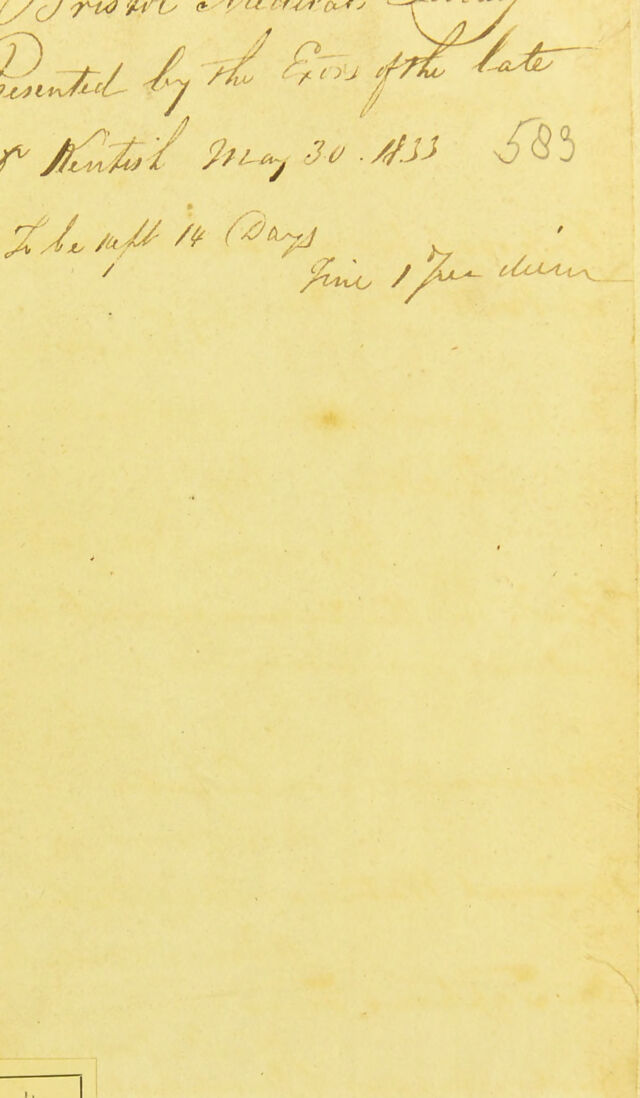 Bristol Medical Library
Presented by the Exors of the late
Dr Kentish May 30. 1833 583
To be kept 14 Days
Fine 1 per diem